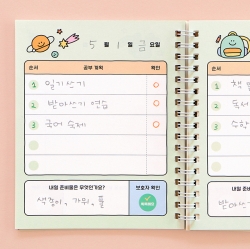 5 월 1 일 금요일
순서 공부 항목 확인
1 일기쓰기 O
2 받아쓰기 연습 O
3 국어 숙제 O
내일 준비물은 무엇인가요? 보호자 확인
색종이, 가위, 풀
순서
1 책 읽
2 독서
3 수학
내일 준비
받아쓰기